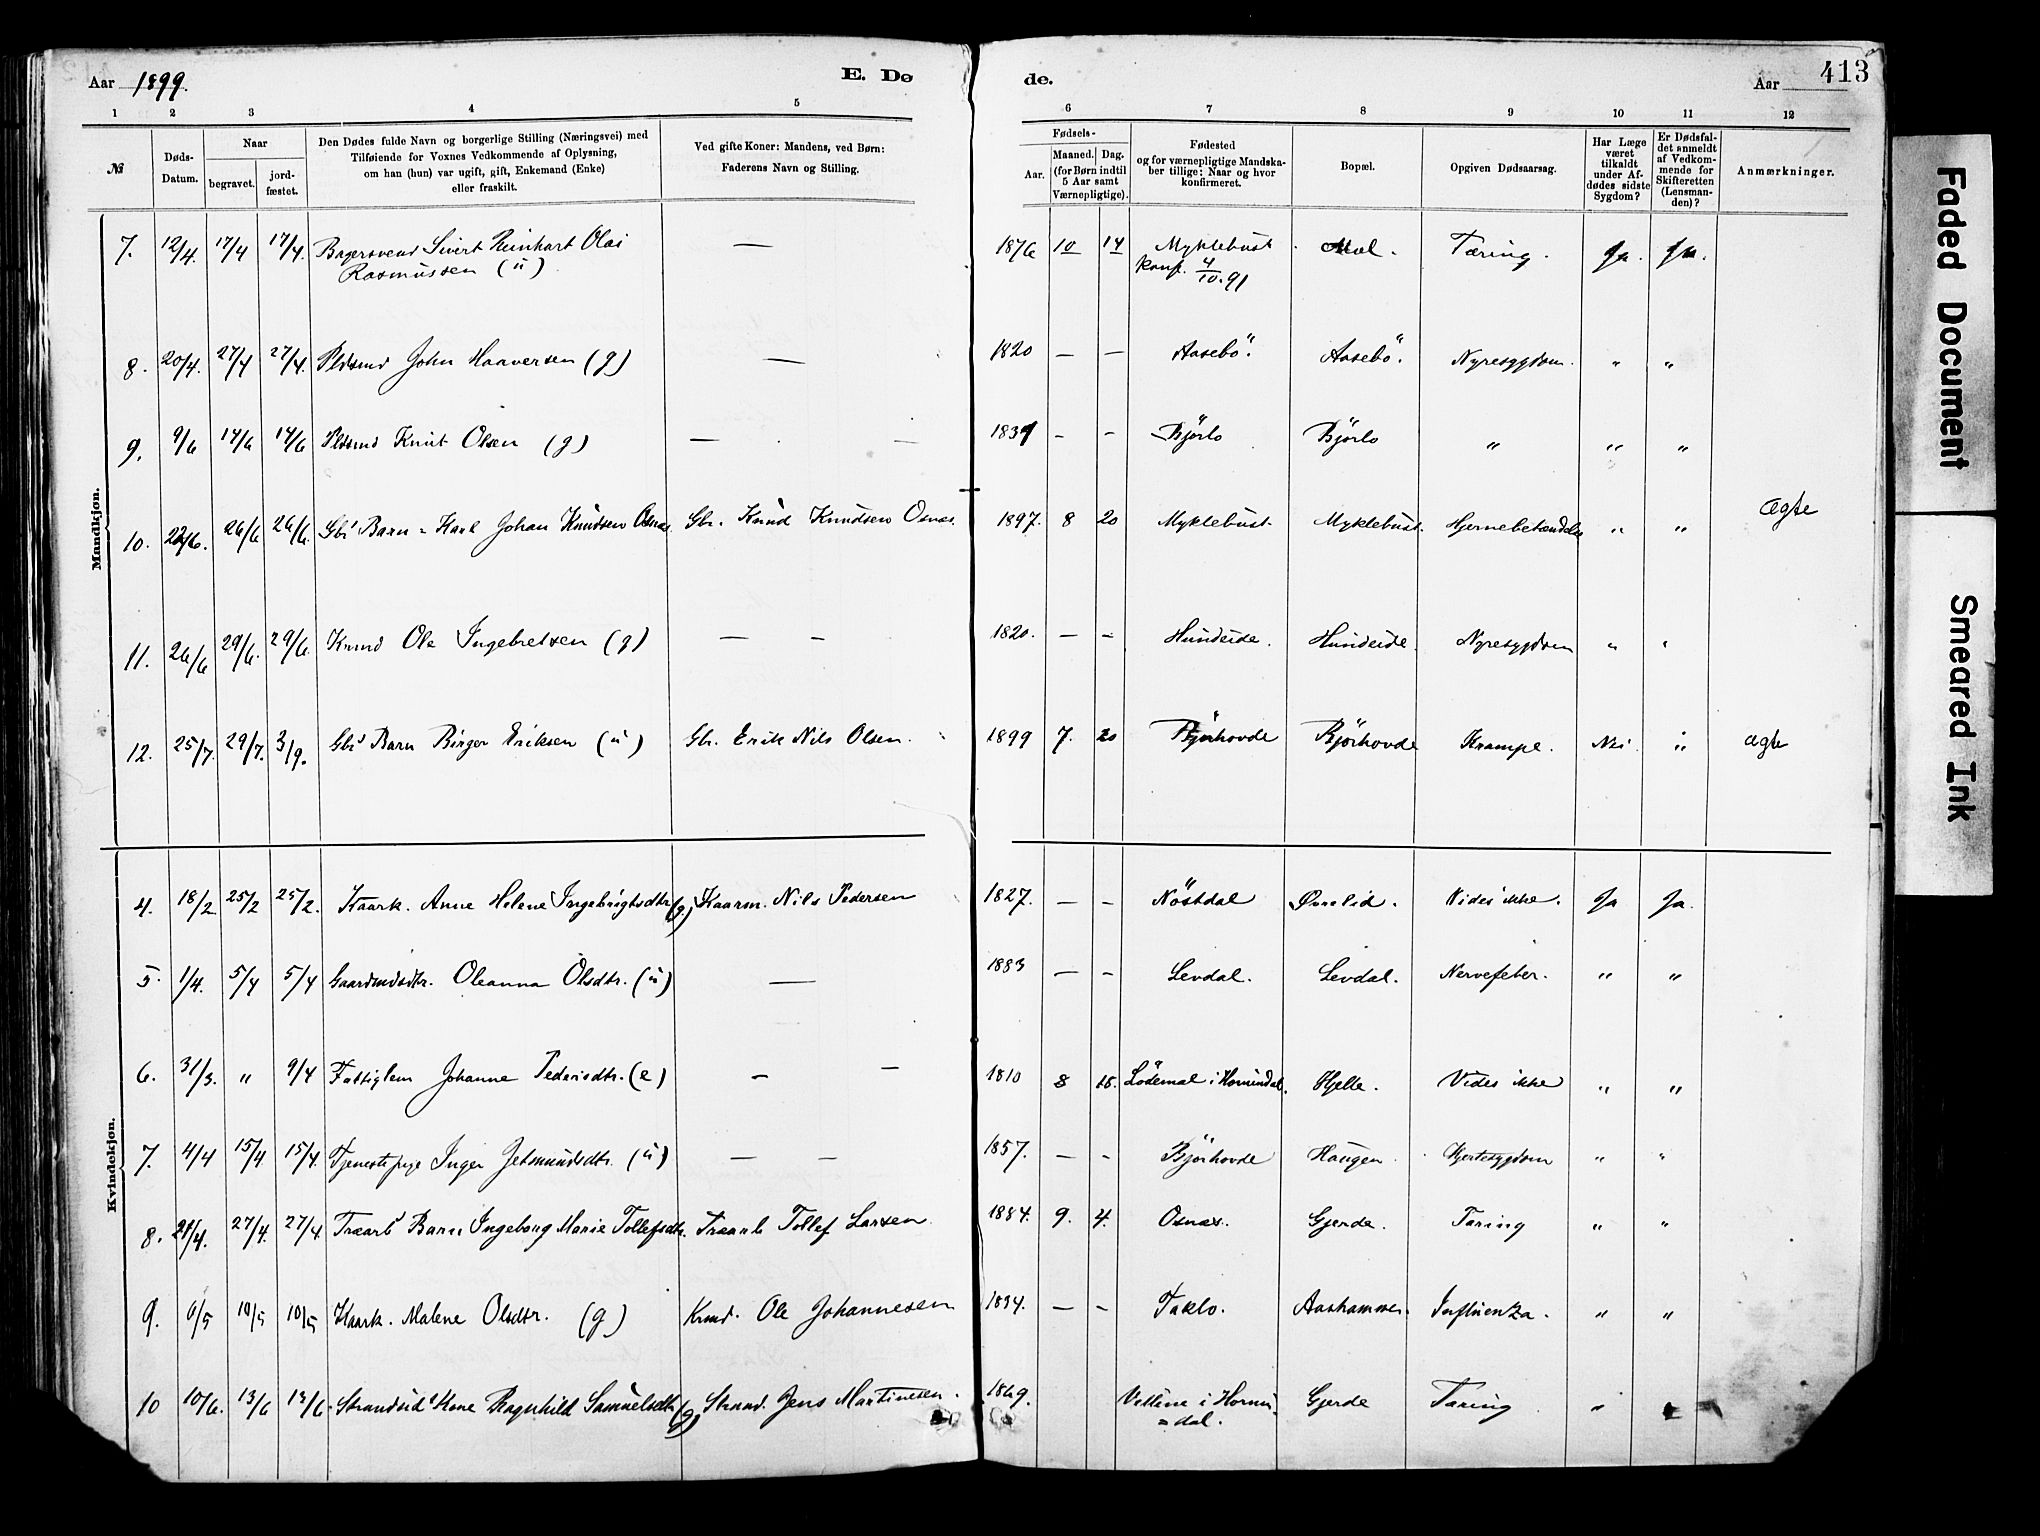 Aar 1899.
E. Dø
de.
Aar
413
1 2 3 4 5 6 7 8 9 10 11 12
№
Døds-
Datum.
Naar
begravet.
jord-
fæstet.
Den Dødes fulde Navn og borgerlige Stilling (Næringsvei) med
Tilføiende for Voxnes Vedkommende af Oplysning,
om han (hun) var ugift, gift, Enkemand (Enke)
eller fraskilt.
Ved gifte Koner: Mandens, ved Børn:
Faderens Navn og Stilling.
Fødsels-
Aar.
Maaned.
Dag.
(for Børn indtil
5 Aar samt
Værnepligtige).
Fødested
og for værnepligtige Mandska-
ber tillige: Naar og hvor
konfirmeret.
Bopæl.
Opgiven Dødsaarsag.
Har Læge
været
tilkaldt
under Af-
dødes sidste
Sygdom?
Er Dødsfal-
det anmeldt
af Vedkom-
mende for
Skifteretten
(Lensman-
den)?
Anmærkninger.
Mandkjøn.
7. 12/4. 17/4 17/4. Bagersvend Sivert Reinhart Olai — 1876 10 14 Myklebust Tæring. Ja. Ja.
Rasmussen (u) Konf. 4/10.91
8. 20/4. 27/4 27/4. Pldsmd John Haaversen (g) — 1820 — — Aasebö. Aasebö. Nyresygdom. " "
9. 9/6 14/6 14/6 Pldsmd Knut Olsen (g) — — - - Bjørlo Bjørlo " " "
10. 22/6. 26/6 26/6. Gbr's Barn - Karl Johan Knudsen Osnæs Gbr. Knud Knudsen Osnæs. 1897. 8 20 Myklebust. Myklebust. Hjernebetændelse " " Ægte
11. 26/6 29/6. 29/6. Kmnd Ole Ingebretsen (g) — - 1820. — - Hundeide. Hundeide. Nyresygdom " "
12. 25/7. 29/7. 3/9. Gbr's Barn Birger Eriksen (u) Gbr. Erik Nils Olsen. 1899 7. 20 Bjørhovde Bjørhovde Krampe. Nei. " ægte
Kvindekjøn.
4. 18/2 25/2 25/2. Kaark. Anne Helene Ingebrigtsdtr (g) Kaarm. Nils Pedersen 1827. — — Nöstdal Øvrelid. Vides ikke. Ja Ja.
5. 1/4. 5/4 5/4 Gaardmdsdtr. Oleanna Olsdtr. (u) — 1883 — - Levdal. Levdal. Nervefeber. " "
6. 31/3. " 9/4 Fattiglem Johanne Pedersdtr. (e) - - 1810 8 15. Lödemæl i Hornindal. Hjelle. Vides ikke " "
7. 4/4 15/4 15/4. Tjenestepige Inger Jetmundsdtr. (u) — - 1857. — - Bjørhovde Haugen. Hjertesygdom " "
8. 21/4. 27/4. 27/4 Træarb's Barn Ingeborg Marie Tollefsdtr. Træarb Tollef Larsen. 1884. 9. 4. Osnæs. Gjerde. Tæring " "
9. 6/5 10/5 10/5 Kaark. Malene Olsdtr. (g) Kmd. Ole Johannesen 1834. — - Taklo. Aarhammer. Influenza. " "
10 10/6. 13/6 13/6. Strandsid's Kone Ragnhild Samuelsdtr (g) Strand. Jens Martinesen. 1869. Vellene i Hornin Gjerde Tæring "
=dal.
Faded Document
Smeared Ink